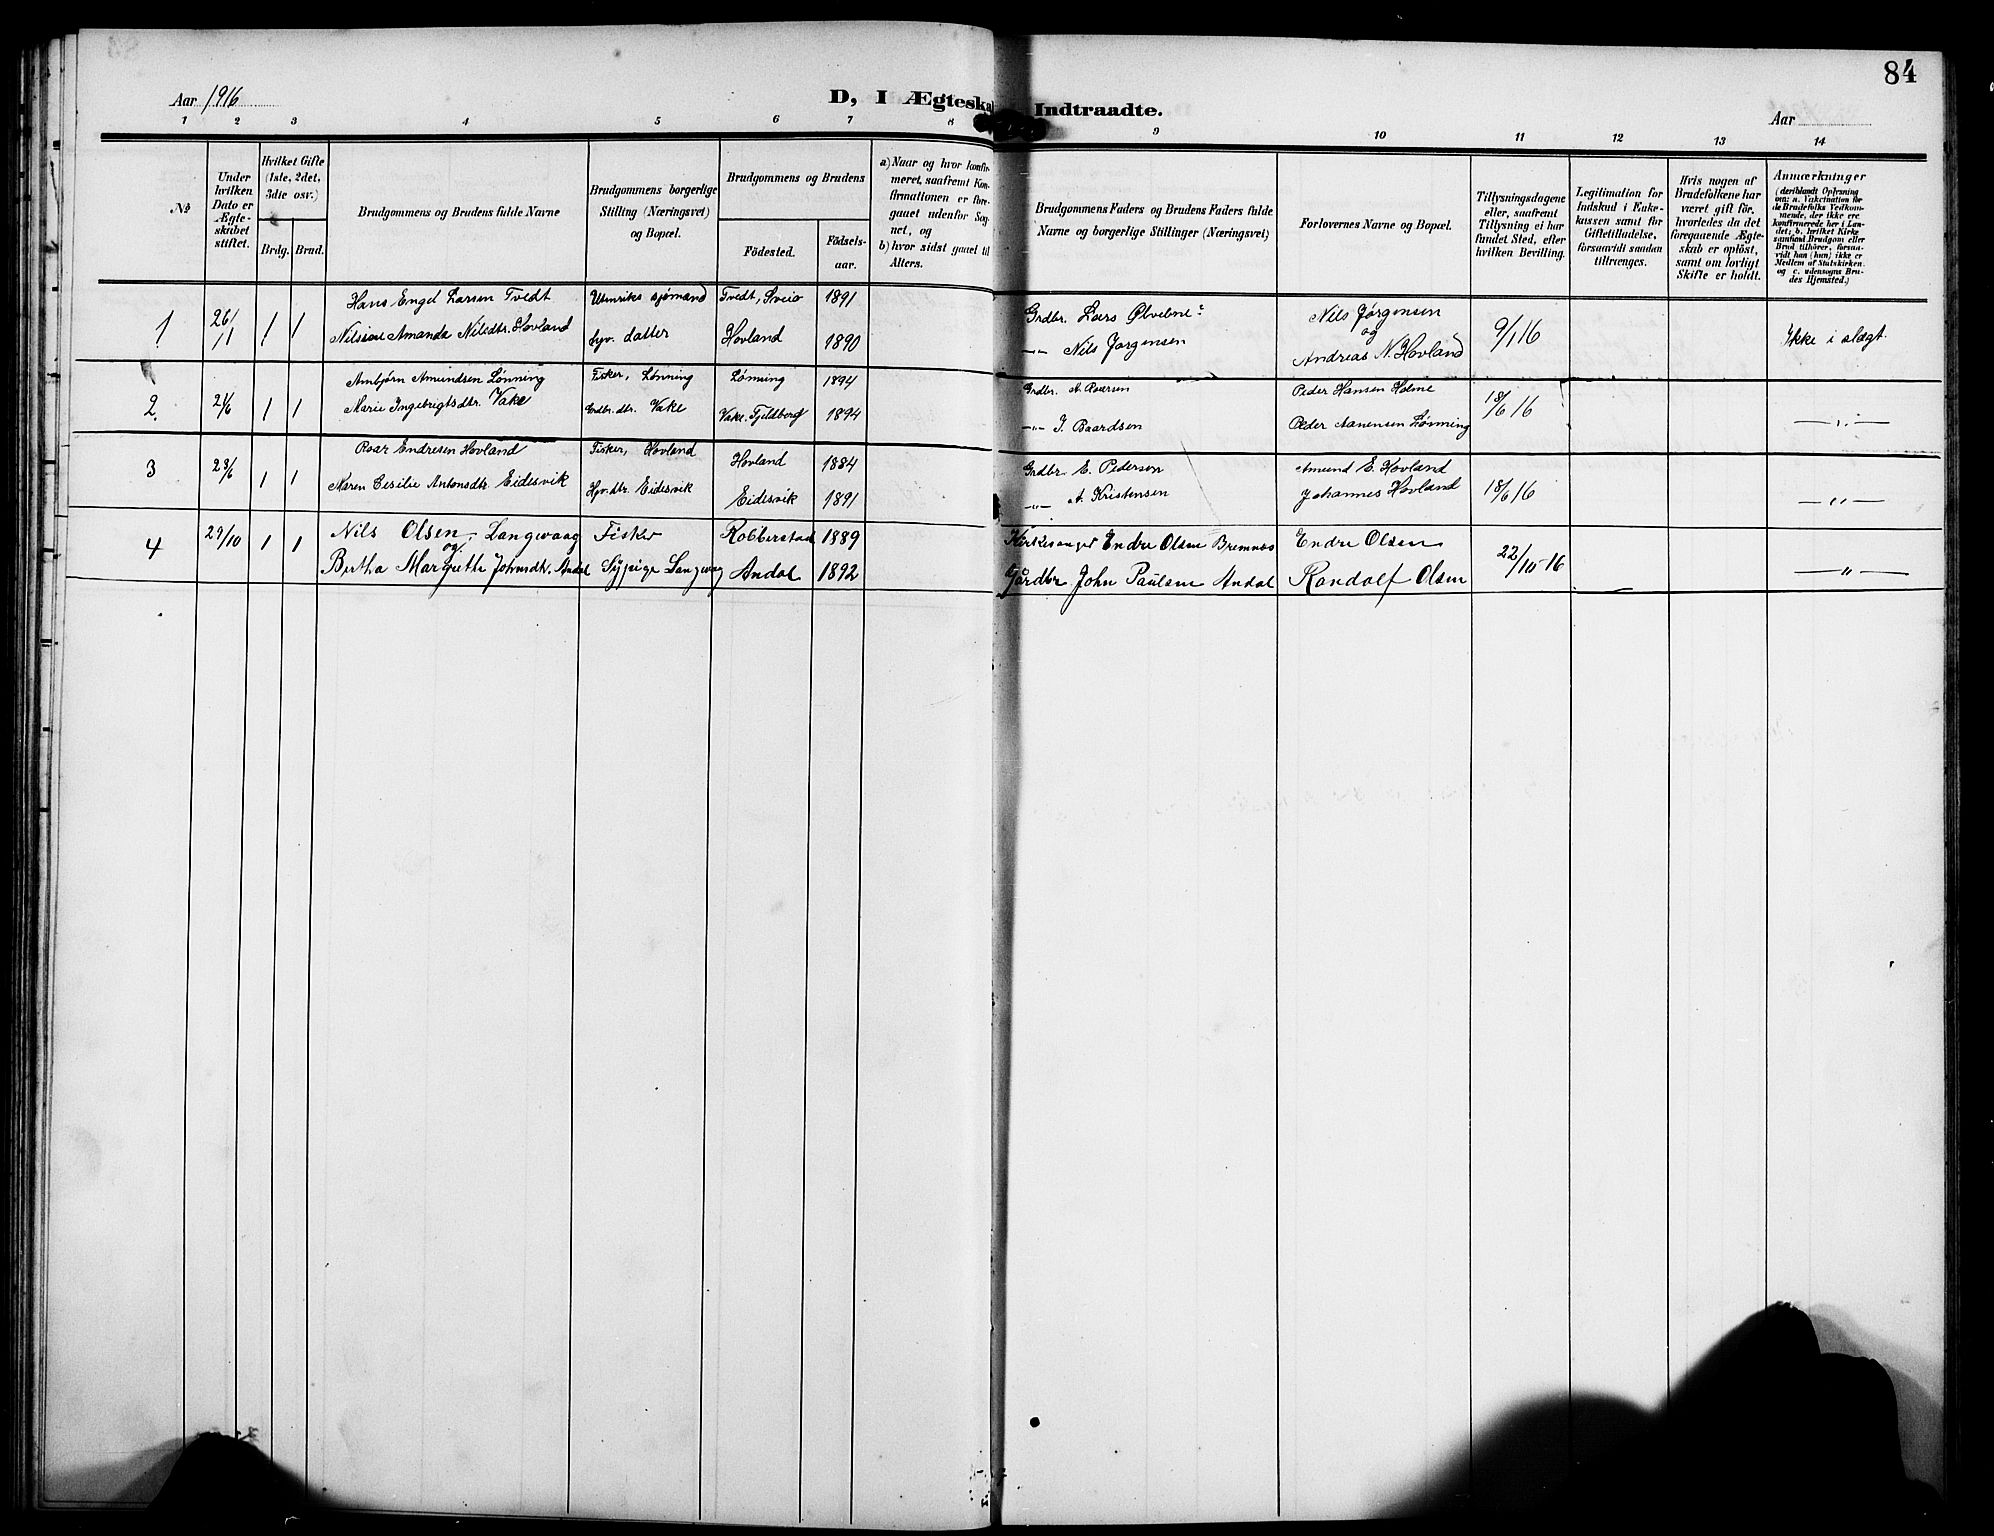 84
Aar 1916
D, I Ægteska Indtraadte.
Aar
1 2 3 4 5 6 7 8 9 10 11 12 13 14
№
Under
hvilken
Dato er
Ægte-
skabet
stiftet.
Hvilket Gifte
(1ste, 2det,
3die osv.)
Brdg. Brud.
Brudgommens og Brudens fulde Navne
Brudgommens borgerlige
Stilling (Næringsvei)
og Bopæl.
Brudgommens og Brudens
Födested.
Födsels-
aar.
a) Naar og hvor konfir-
meret, saafremt Kon-
firmationen er fore-
gaaet udenfor Sog-
net, og
b) hvor sidst gaaet til
Alters.
Brudgommens Faders og Brudens Faders fulde
Navne og borgerlige Stillinger (Næringsvei)
Forlovernes Navne og Bopæl.
Tillysningsdagene
eller, saafremt
Tillysning ei har
fundet Sted, efter
hvilken Bevilling.
Legitimation for
Indskud i Enke-
kassen samt for
Giftetilladelse,
forsaavidt saadan
tiltrænges.
Hvis nogen af
Brudefolkene har
været gift för,
hvorledes da det
foregaaende Ægte-
skab er oplöst,
samt om lovligt
Skifte er holdt.
Anmærkninger
(deriblandt Oplysning
om: a. Vakcination for
de Brudefolks Vedkom-
mende, der ikke ere
konfirmerede her i Lan-
det; b. hvilket Kirke
samfund Brudgom eller
Brud tilhörer, forsaa-
vidt han (hun) ikke er
Medlem af Statskirken.
og c. udensogns Bru-
des Hjemsted.)
1 26/1 1 1 Hans Engel Larsen Tvedt Utenriks sjömand Tvedt, Sveio 1891 Grdbr. Lars
Amanda Nilsdtr. Hovland datter Hovland 1890 -"- Nils Jørgensen
Nils Jørgensen
og
Andreas N. Hovland
9/1 16
Ikke i slægt.
2 2/6 1 1 Ambjörn Amundsen Lönning Fisker, Lönning Lönning 1894 Grdbr. A. Roarsen Peder Hansen Holme 18/6 16
Marie Ingebrigtsdtr. Vake Grdbr.dtr. Vake Vake. Fjeldberg 1894 -"- I. Baardsen Peder Aanensen Lönning -"-
3 23/6 1 1 Roar Endresen Hovland Fisker, Hovland Hovland 1884 Grdbr. E. Pedersen Amund E. Hovland 18/6 16
Maren Cecilie Antonsdtr. Eidesvik Eidesvik Eidesvik 1891 " A. Kristensen Johannes Hovland -"-
4 29/10 1 1 Nils Olsen, Langevaag Fisker Robberstad 1889 Kirkesanger Endre Olsen Bremnes Endre Olsen 22/10-16
og
Bertha Margrethe Johnsdtr. Andal Sypige Langevaag Andal 1892 Gårdbr John Paulsen Andal Randolf Olsen -"-